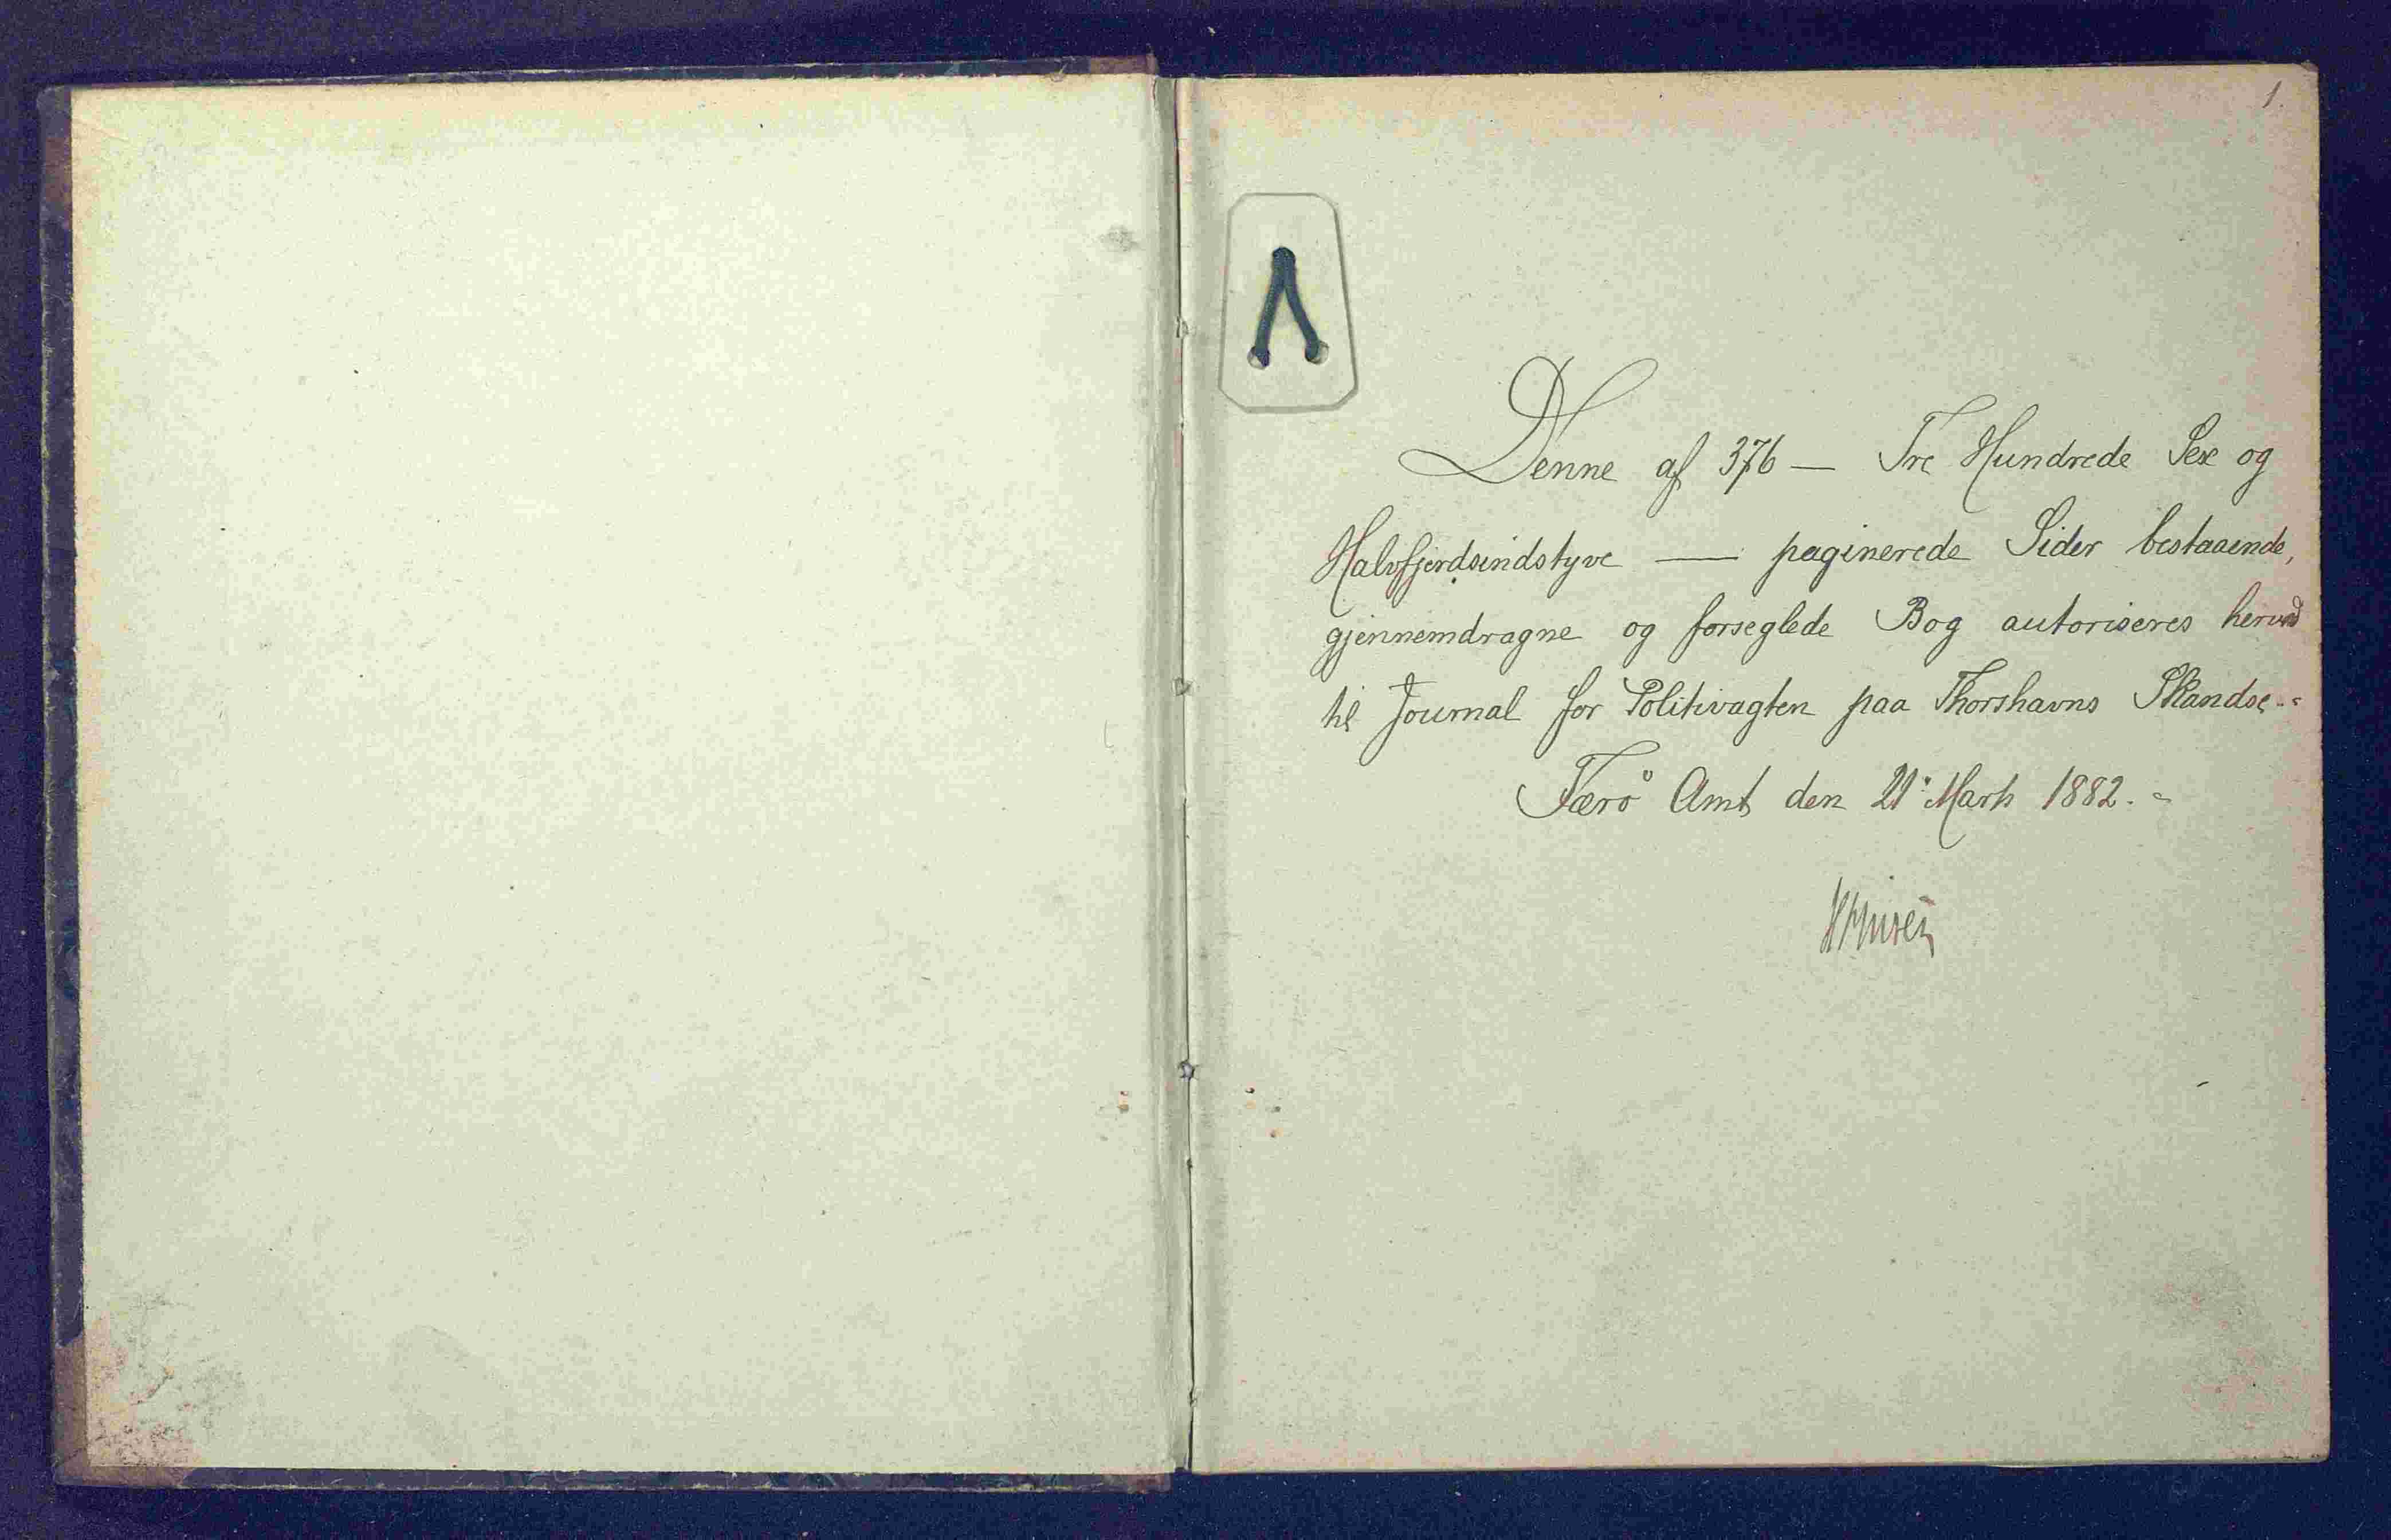 1.
Denne af 376 — Tre Hundrede Sex og
Halvfjerdsindstyve — paginerede Sider bestaaende,
gjennemdragne og forseglede Bog autoriseres herved
til Journal for Politivagten paa Thorshavns Skandse.-
Færö Amt den 21' Marts 1882.-